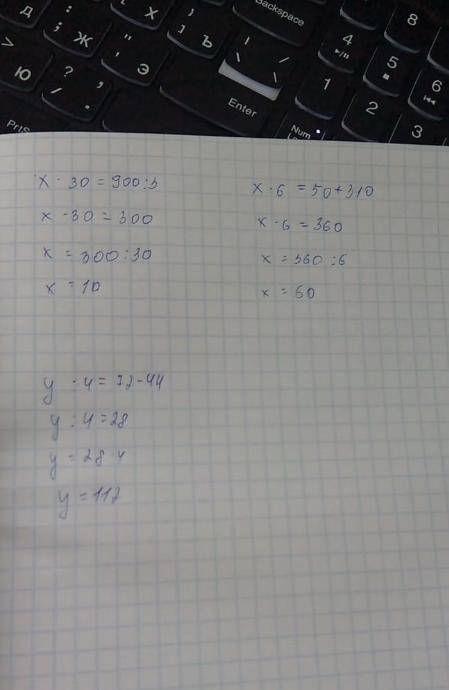 Д
Ж
Х
Ъ
Э
Ю
Backspace
Enter
PrtS
Num
8
4
5
6
1
2
3
x · 30 = 900 : 3
x · 30 = 300
x = 300 : 30
x = 10
x · 6 = 50 + 310
x · 6 = 360
x = 360 : 6
x = 60
y : 4 = 72 - 44
y : 4 = 28
y = 28 · 4
y = 112